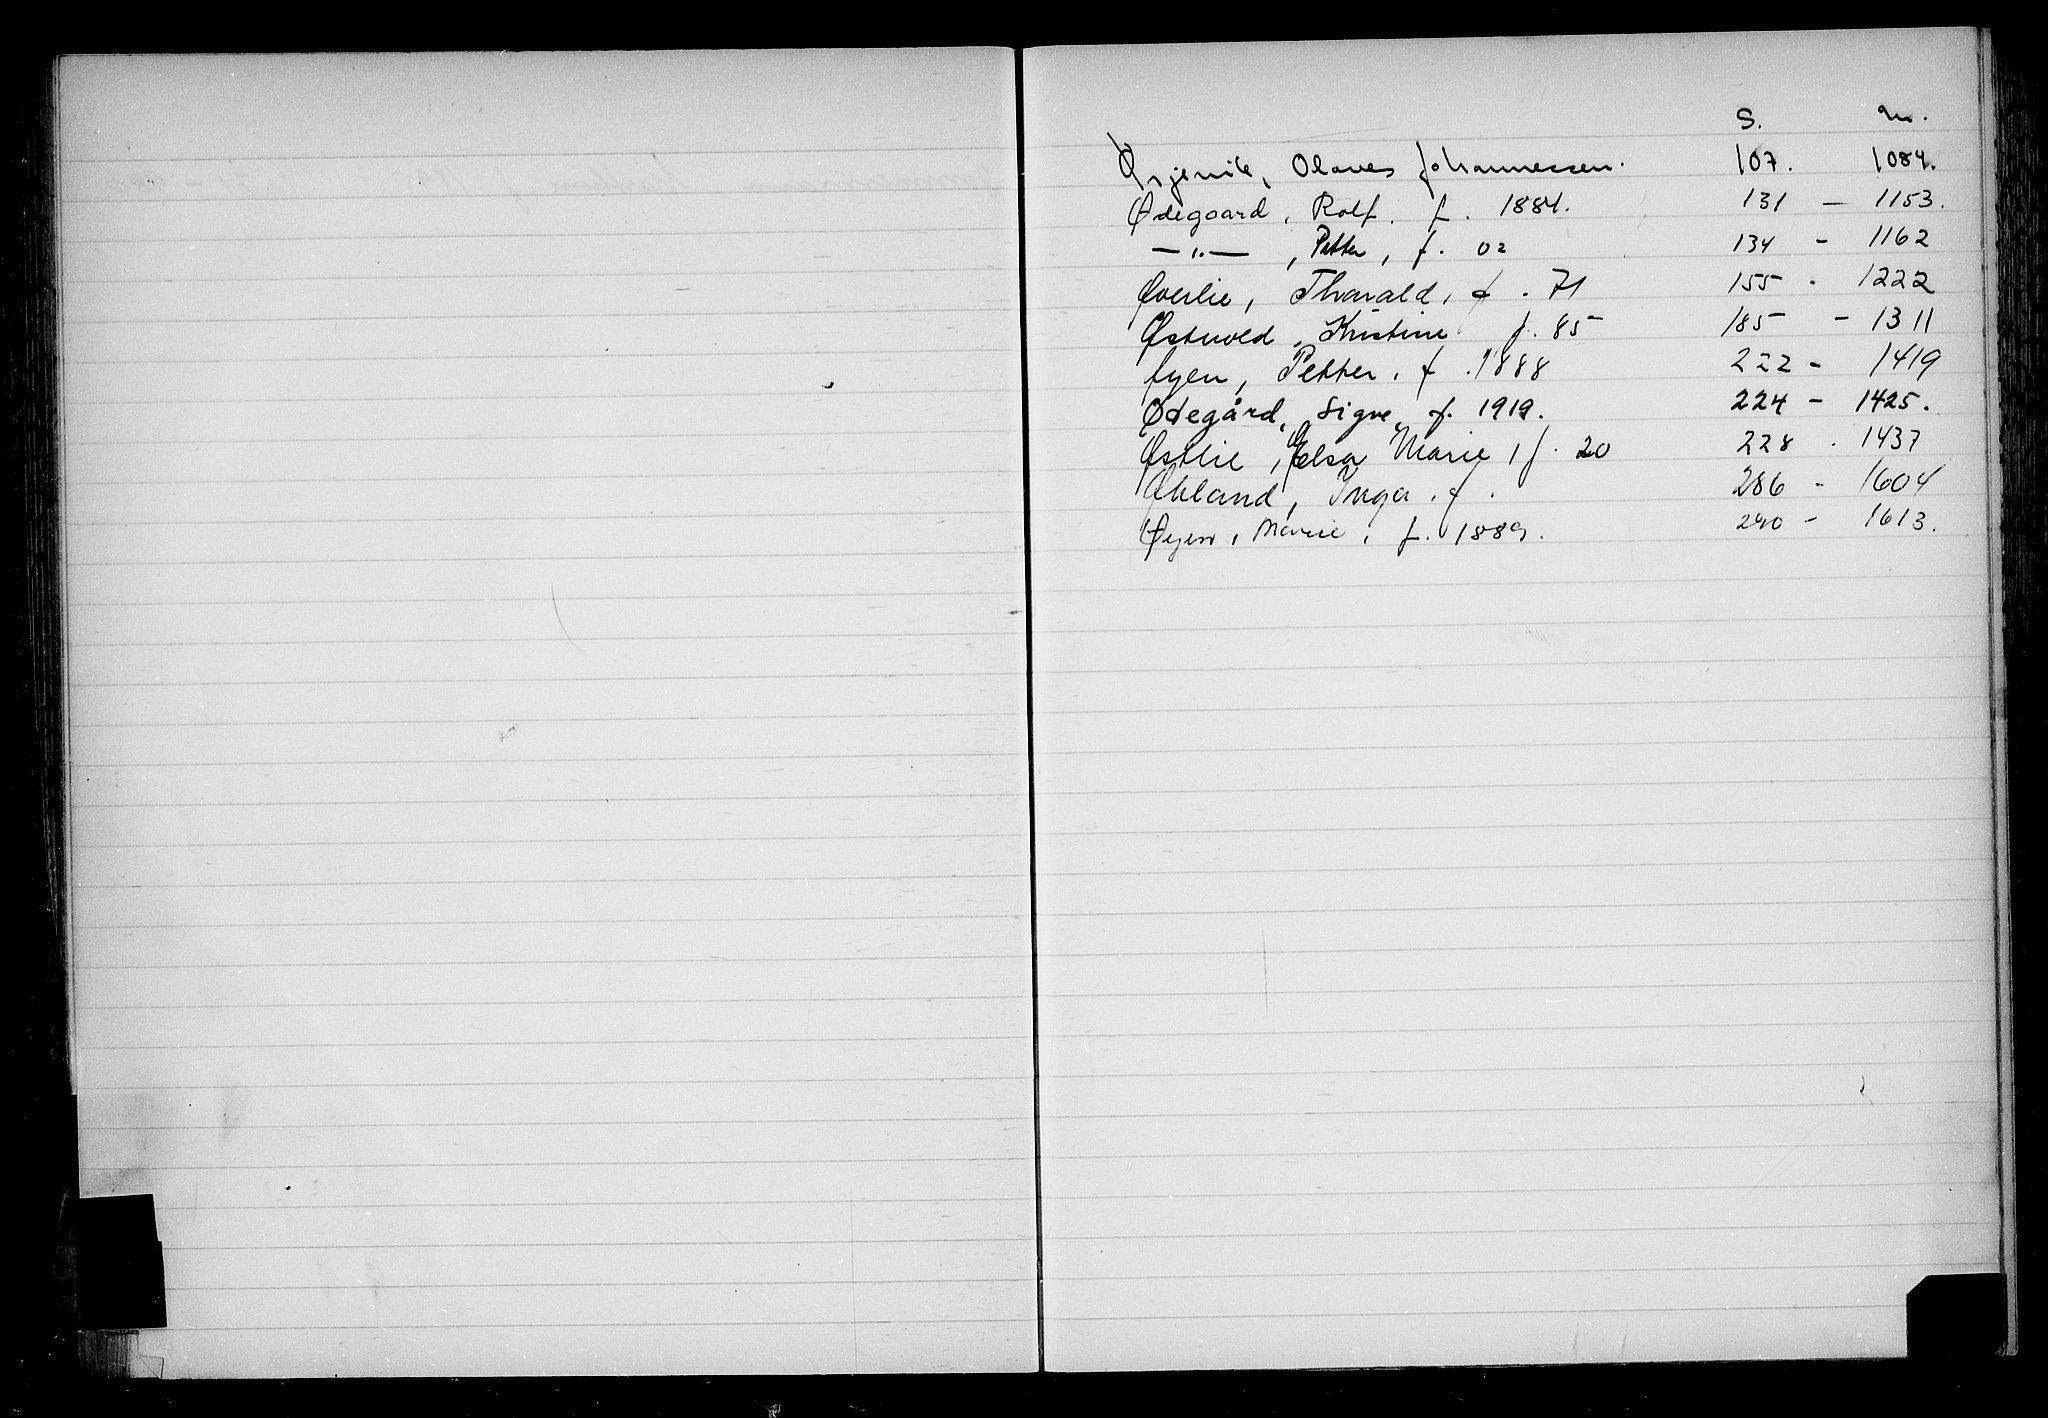 S. n.
Ørjevik, Olaves Johannessen. 107. 1084.
Ødegaard, Rolf. f. 1884. 131 - 1153.
-"- , Petter, f. 02 134 - 1162
Øverlie, Thorvald, f. 71 155 - 1222
Østvold, Kristine f. 85 185 - 1311
Øyen, Petter. f. 1888 222 - 1419
Ødegård, Signe, f. 1919. 224 - 1425.
Østlie, Elsa Marie, f. 20 228 - 1437
Økland, Inga. f. 286 - 1604
Øyen, Marie, f. 1889. 290 - 1613.